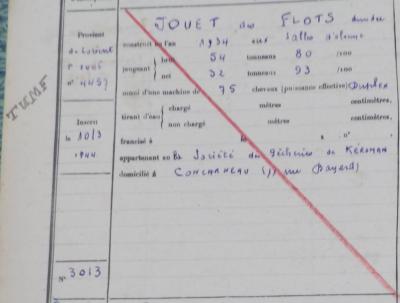 JOUET des FLOTS
Provient
construit en l'an 1934 aux Sables d'olonne
de Lorient
brut 54 tonneaux 80 /100
f° 1446
jaugeant
n° 4457
net 32 tonneaux 93 /100
muni d'une machine de 75 chevaux (puissance effective) Duplex
TUMF
chargé mètres centimètres,
tirant d'eau
Inscri
non chargé mètres centimètres,
le 10/3
francisé à le n°
1944
appartenant à la Société des Pêcheries de Kéroman
domicilié à CONCARNEAU (11 rue Bayard)
N° 3013